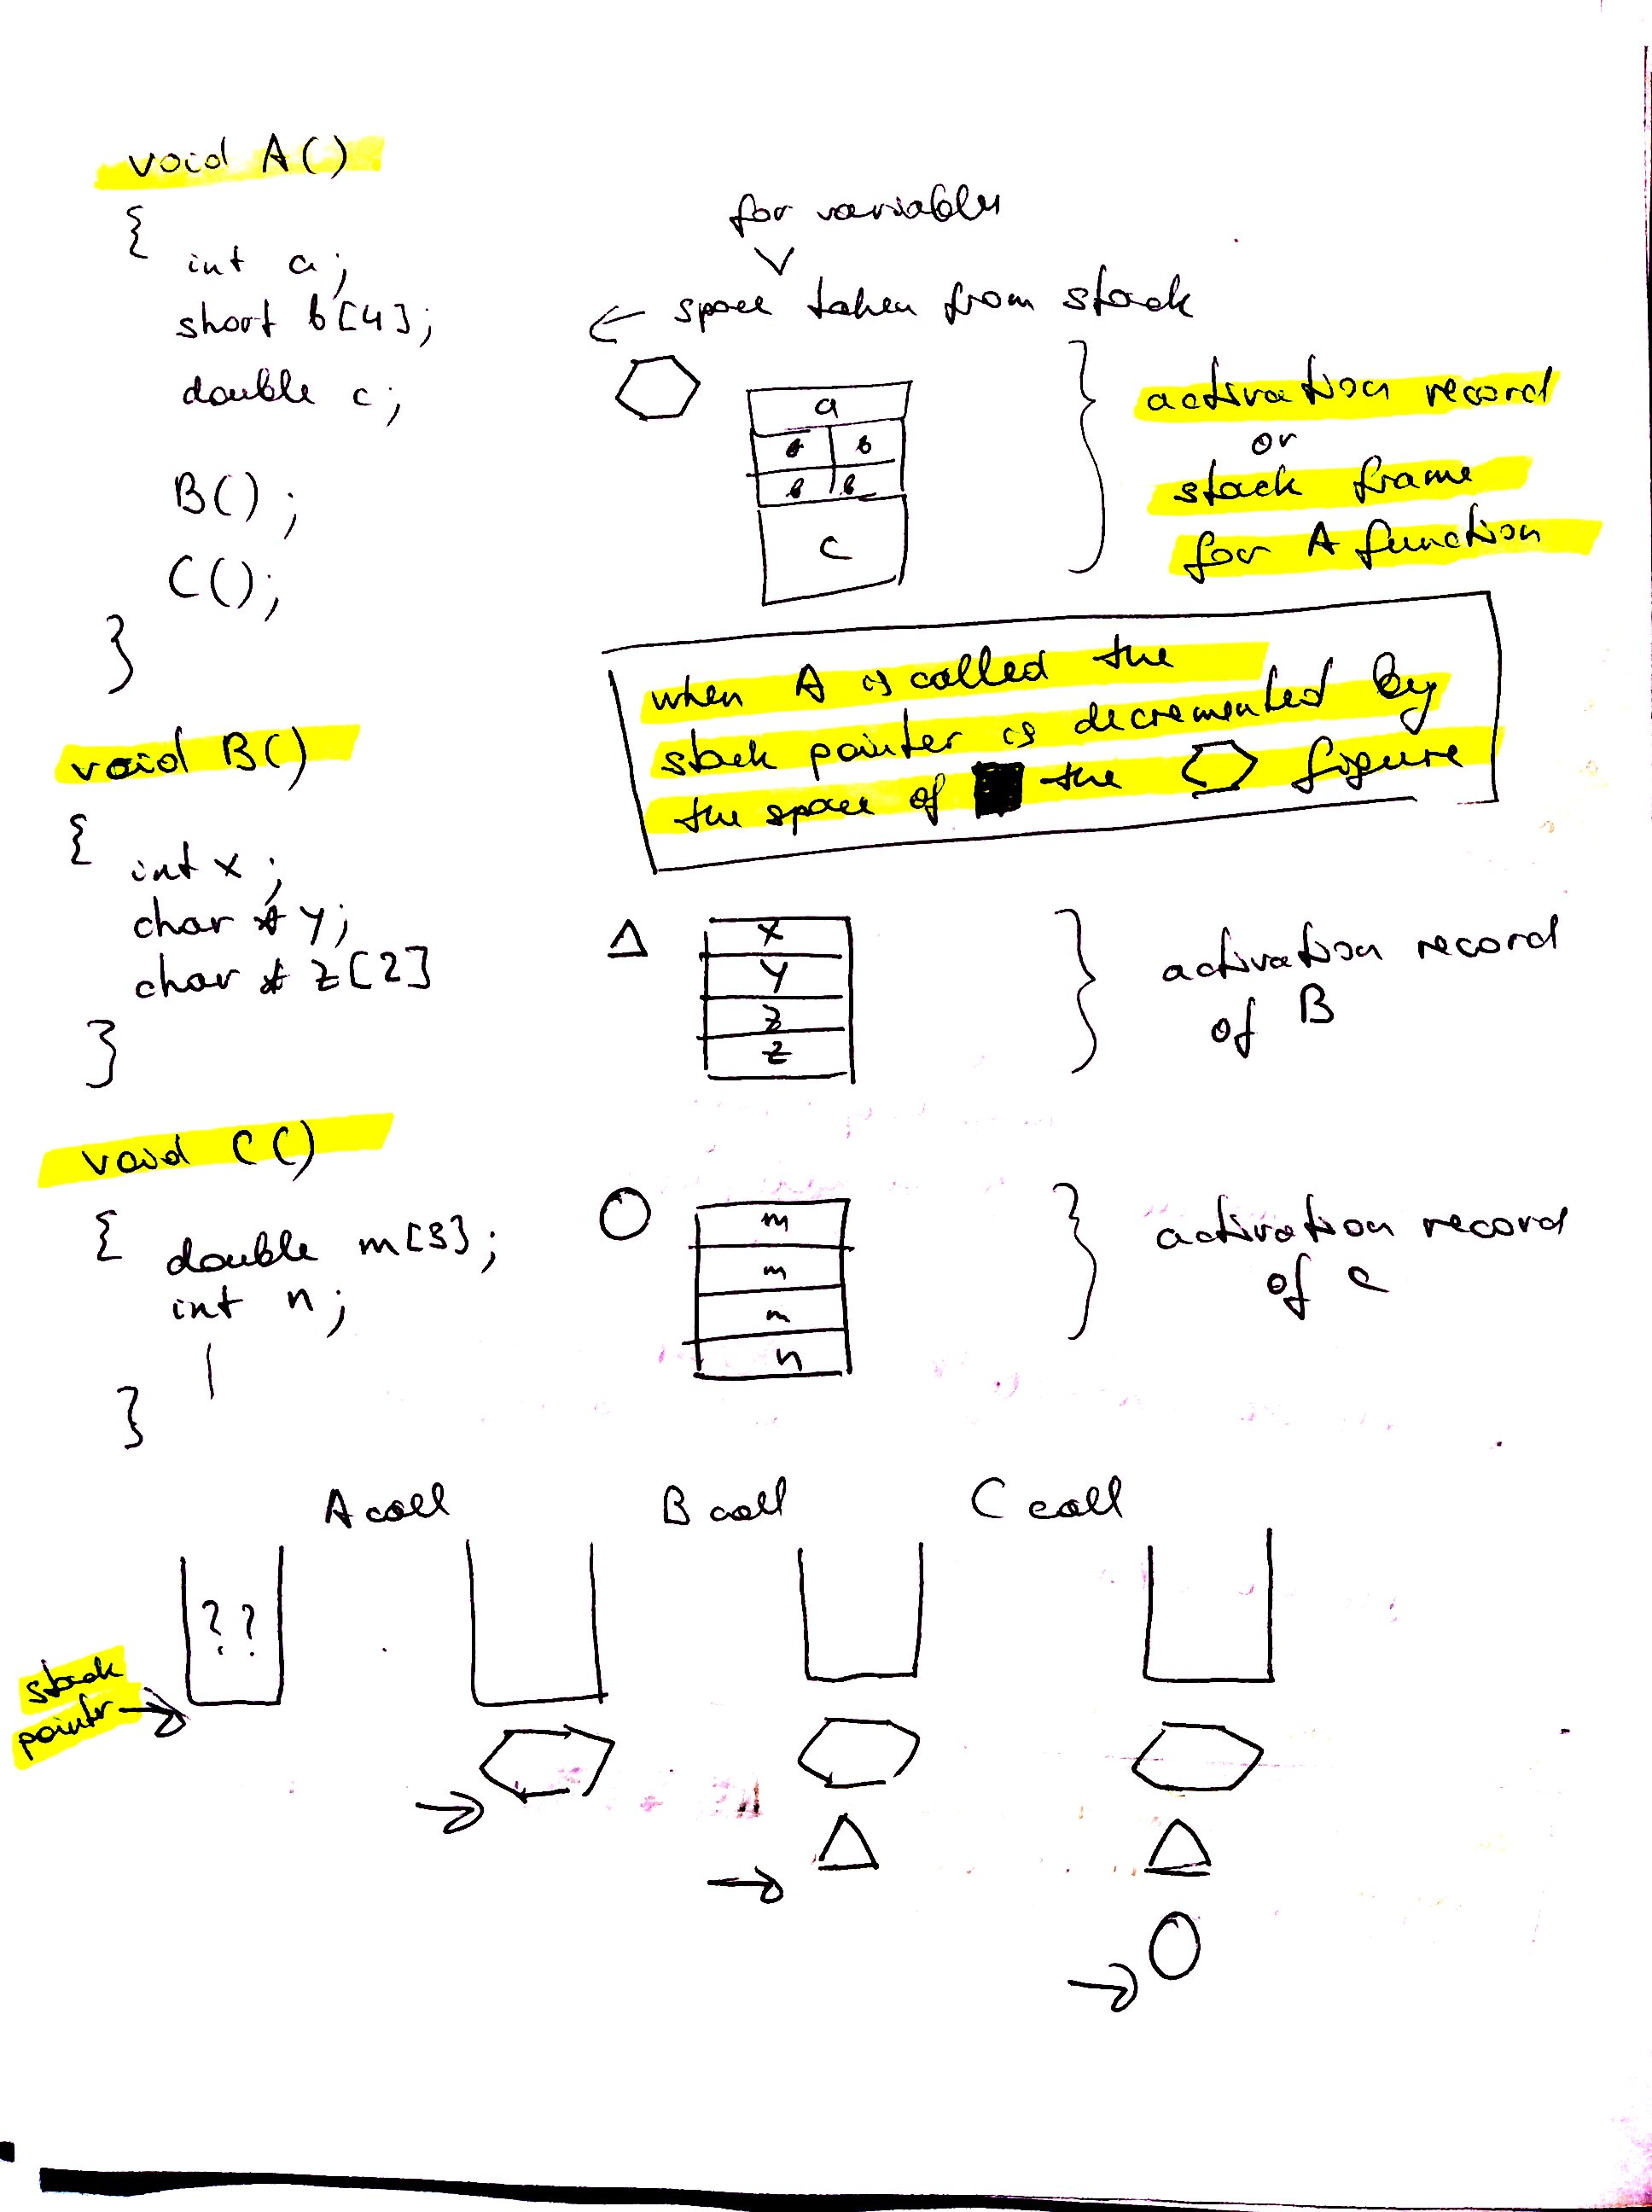 void A()
{
int a;
short b[4];
double c;
B();
C();
}
for variables
← space taken from stack
a
b b
b b
c
activation record
or
stack frame
for A function
when A is called the
stack pointer is decremented by
the space of the figure
void B()
{
int x;
char * y;
char * z[2]
}
x
y
z
z
activation record
of B
void C()
{ double m[3];
int n;
}
m
m
m
n
activation record
of C
A call
B call
C call
??
stack
pointr →